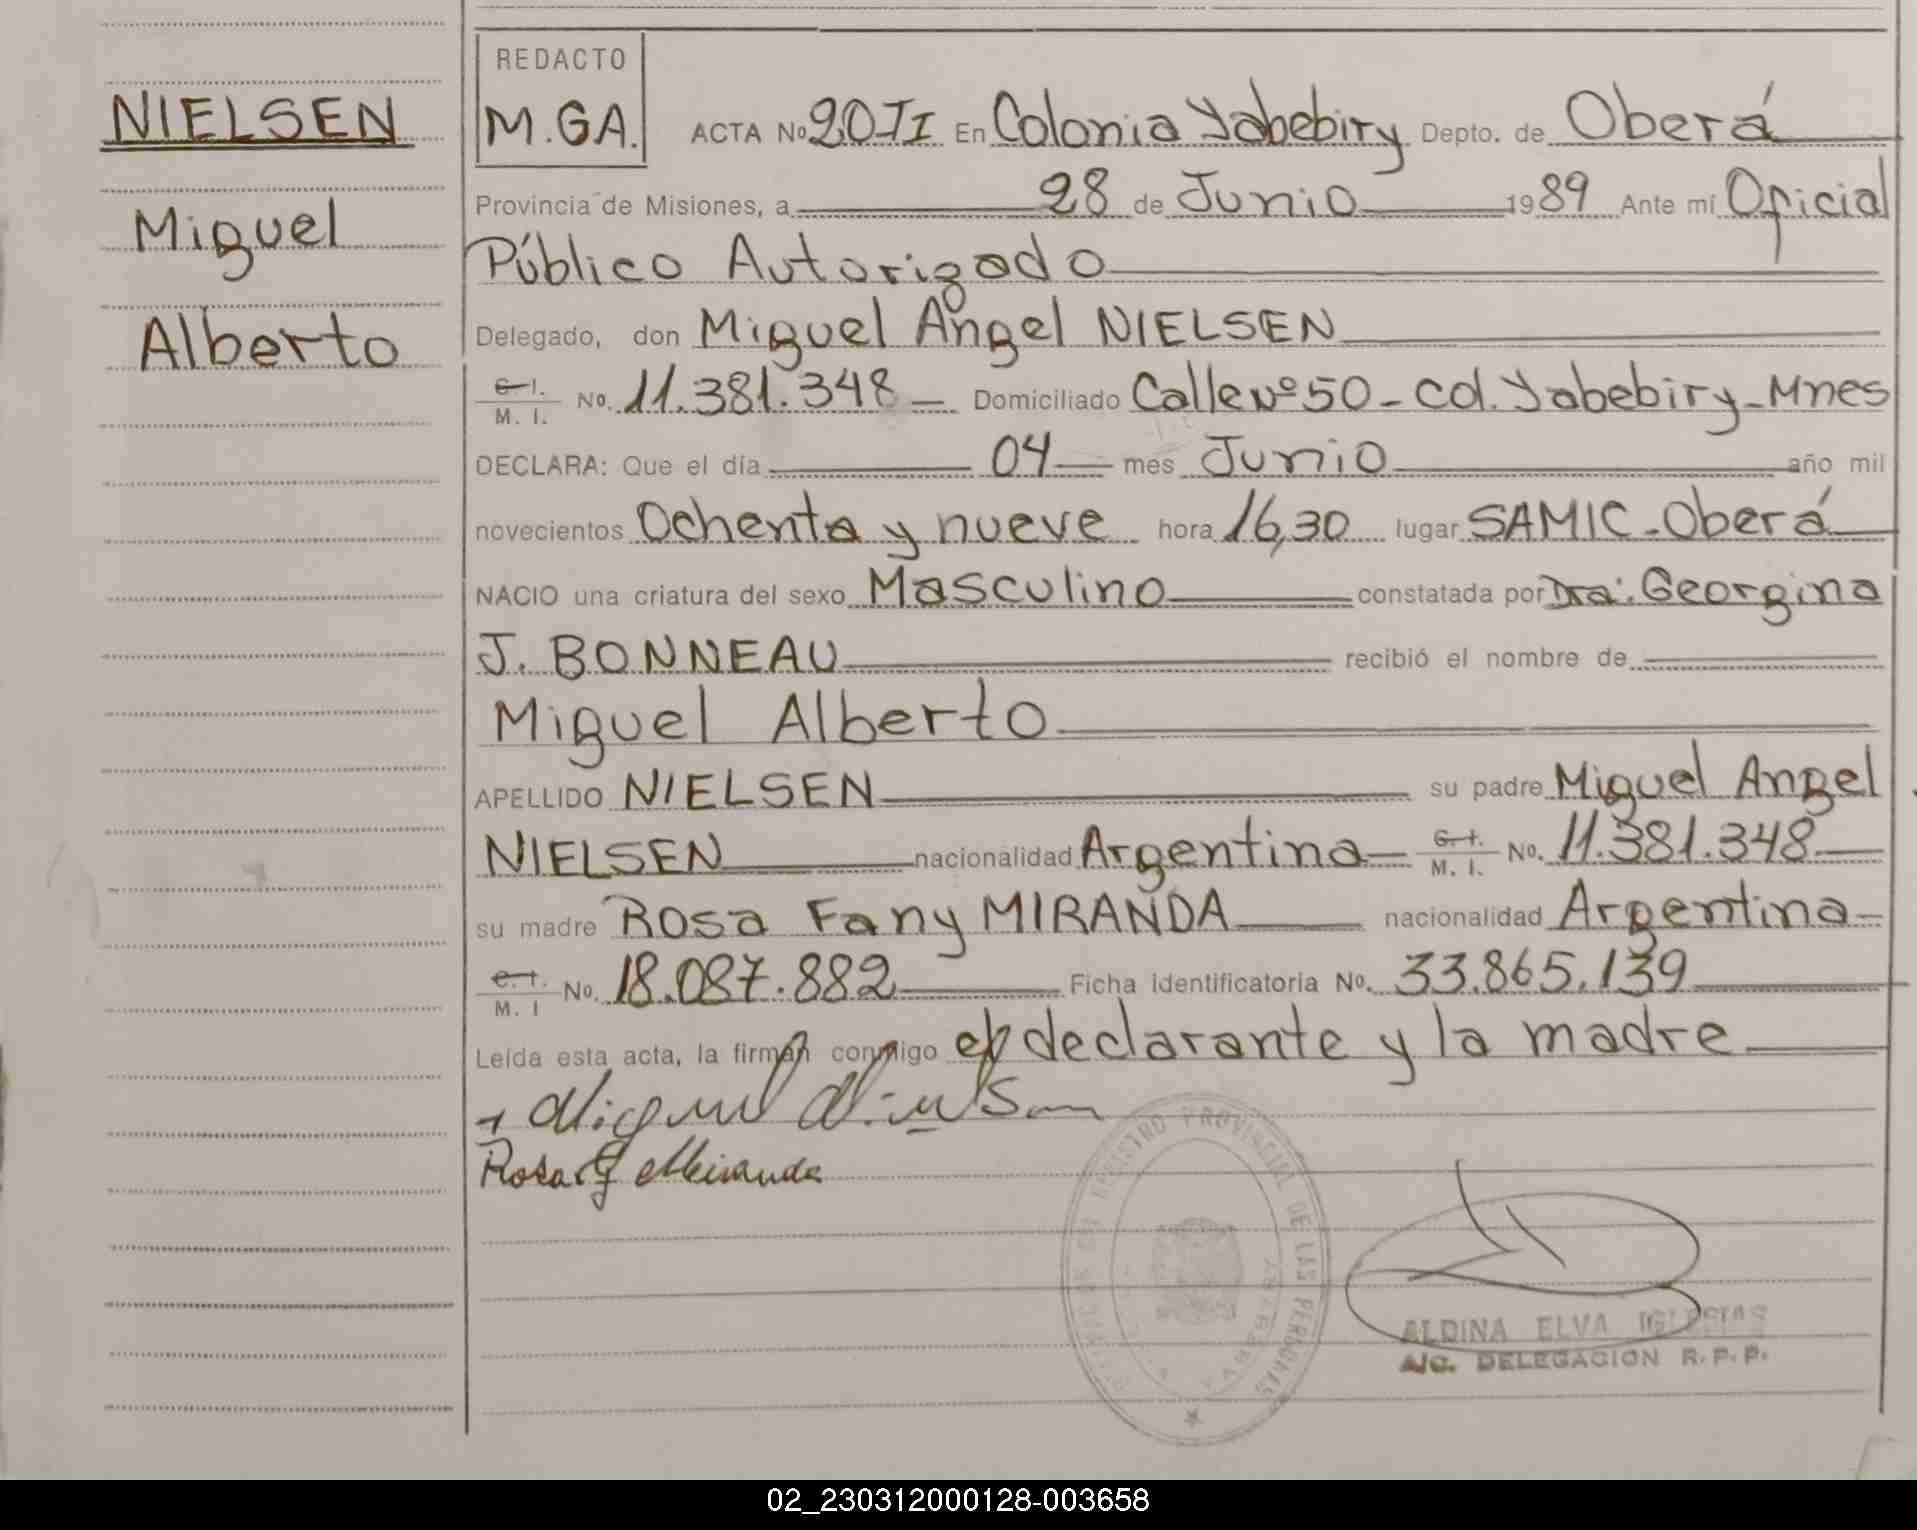 NIELSEN
Miguel
Alberto
REDACTO
M.GA. ACTA Nº 20 TI En Colonia Yabebiry Depto. de Oberá
Provincia de Misiones, a 28 de Junio 1989 Ante mí Oficial
Público Autorizado
Delegado, don Miguel Angel NIELSEN
C. I. M. I. No. 11.381.348 Domiciliado Calle Nº 50 - Col. Yabebiry - Mnes
DECLARA: Que el día 04 mes Junio año mil
novecientos Ochenta y nueve hora 16,30 lugar SAMIC - Oberá
NACIO una criatura del sexo Masculino constatada por Dra: Georgina
J. BONNEAU recibió el nombre de
Miguel Alberto
APELLIDO NIELSEN su padre Miguel Angel
NIELSEN nacionalidad Argentina C. I. M. I. No. 11.381.348
su madre Rosa Fany MIRANDA nacionalidad Argentina
C. I. M. I No. 18.087.882 Ficha identificatoria No. 33.865.139
Leída esta acta, la firman conmigo el declarante y la madre
Miguel A. Nielsen
Rosa F Miranda
REGISTRO PROVINCIAL DE LAS PERSONAS
ALDINA ELVA IGLESIAS
A/C. DELEGACION R.P.P.
02_230312000128-003658